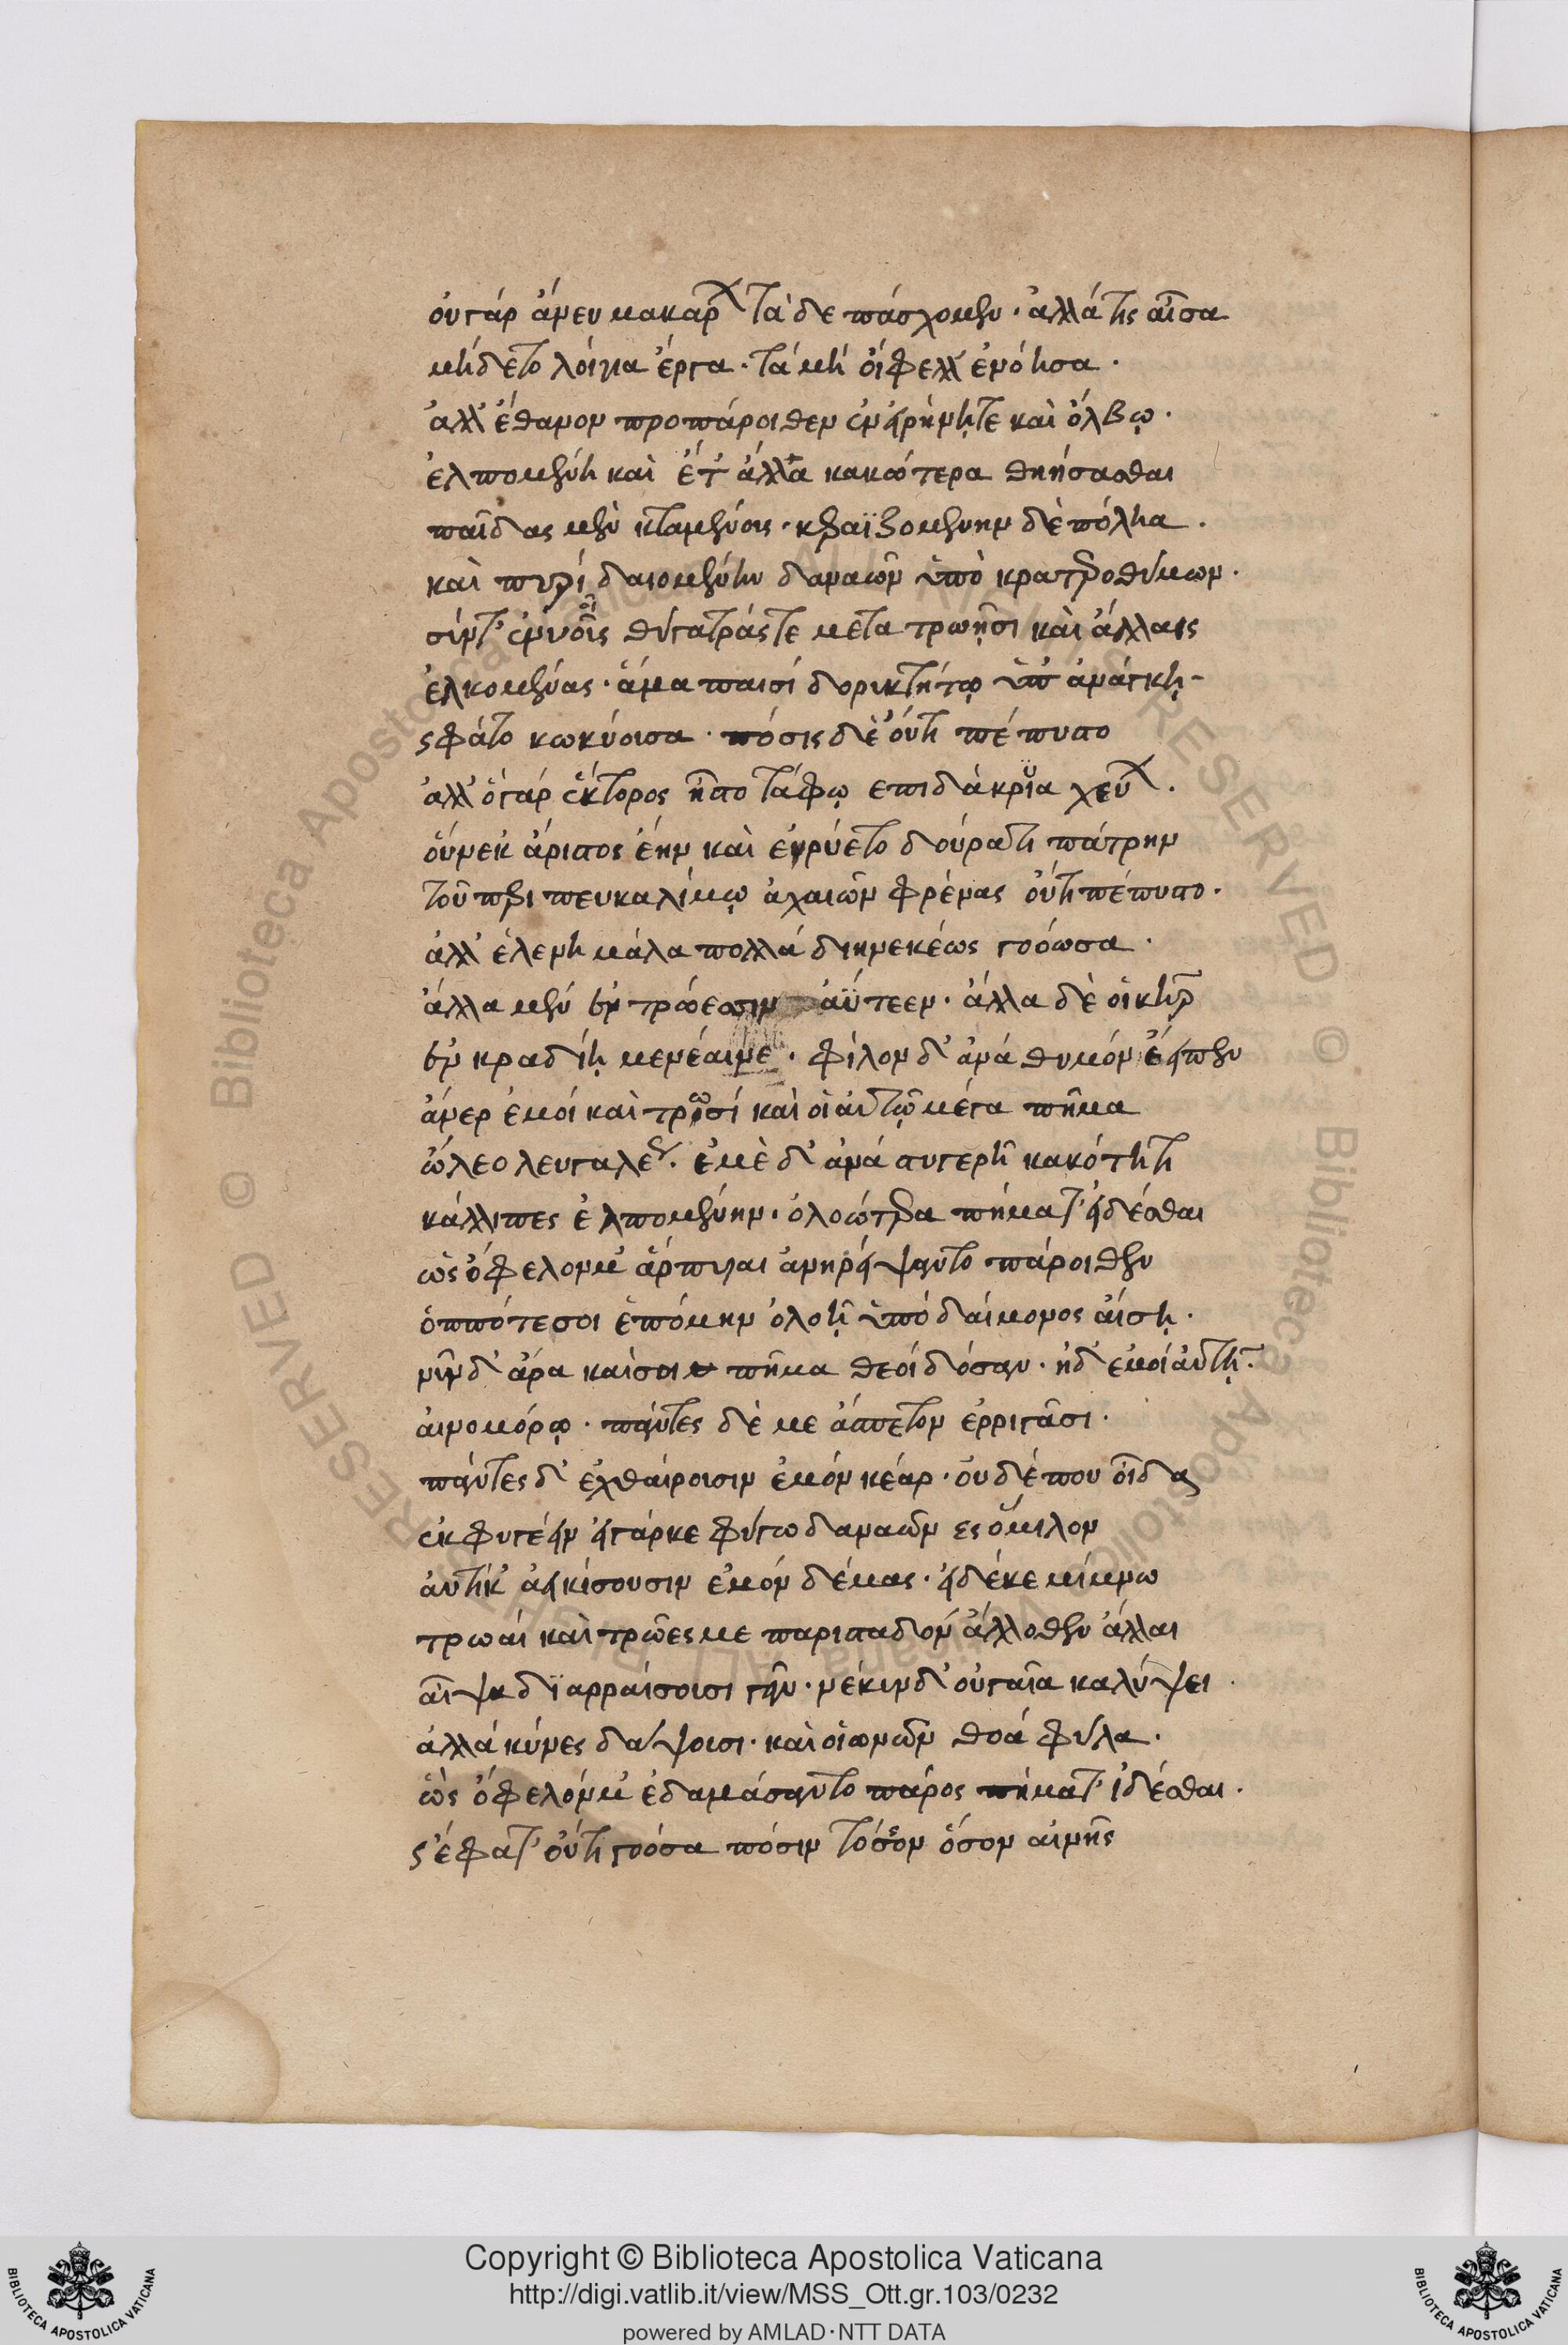 ὀυγάρ ἄνευ μακάρων τὰ δε πάσχομεν. ἀλλά τίς αἶσα
μήδετο λοίγια ἔργα. τὰ μή ὤφελλ' ἐνόησα.
ἀλλ' ἔθανον προπάροιθεν ἐν εἰρήνῃτε καὶ ὄλβῳ.
ἐλπομένη καὶ ἔτ' ἄλλα κακώτερα θηήσασθαι
παῖδας μὲν κταμένους. κεραϊζομένην δὲ πόληα.
καὶ πυρί δαιομένην δαναῶν ὑπὸ κρατεροθύμων.
σύντ' ἐνυοῖς θύγατράςτε μετα τρωῇσι καὶ ἄλλαις
ἑλκομένας. ἅμα παισί δορικτήτῳ ὑπ' ἀνάγκῃ.
ς φάτο κωκύουσα. πόσις δὲ οὔτι πέπυστο
ἀλλ' ὁγάρ ἕκτορος ἧστο τάφῳ επιδάκρυα χεύων.
οὕνεκ' ἄριστος ἔην καὶ ειρύετο δούρατι πάτρην
τοῦ περι πευκαλίμῳ ἀχαιῶν φρένας οὔτι πέπυστο.
ἀλλ' ἑλενη μάλα πολλά διηνεκέως γοόωσα.
ἄλλα μέν ἐν τρώεσσιν ἀΰτεεν. ἄλλα δὲ οἱ κῆρ
ἐν κραδίῃ μενέαινε. φίλον δ' ἀνά θυμόν ἔειπεν
ἄνερ ἐμοί καὶ τρωσί καὶ οἱ αυτῷ μέγα πῆμα
ὤλεο λευγαλέως. ἐμὲ δ' ἀνά στυγερῇ κακότητι
κάλλιπες ἐλπομένην. ὀλοώτερα πήματ' εἰδέσθαι
ὡς ὄφελονμ' ἅρπυιαι ἀνηρείψαντο πάροιθεν
ὁππότεσοι ἑπόμην ὀλοῇ ὑπό δαίμονος αἴσῃ.
νῦν δ' ἄρα καὶ σοι πῆμα θεοί δόσαν. ηδ' εμοί αυτῇ.
αινομόρῳ. πάντες δέ με ἄσπετον ἐρρίγασι.
πάντες δ' ἐχθαίρουσιν ἐμόν κέαρ. οὐ δέ που οἶδα
ἐκφυγέειν εἰγάρκε φύγω δαναῶν ες ὅμιλον
ἀυτίκ' ἀεικίσουσιν εμόν δέμας. εἰ δέκε μίμνω
τρωαί καὶ τρῶες με παρισταδόν ἄλλοθεν ἄλλαι
αἶψα διαρραίσουσι γῆν. νέκυν δ' οὐ γαῖα καλύψει.
ἀλλά κύνες δάψουσι. καὶ οἰωνῶν θοά φύλα.
ὡς ὄφελόνμ' ἐδαμάσαντο πάρος πήματ' ἰδέσθαι.
ς ἔφατ' οὔτι γοόσα πόσιν τόσσον ὅσον αἰνῆς
© Biblioteca Apostolica Vaticana ALL RIGHTS RESERVED © Biblioteca Apostolica Vaticana ALL RIGHTS RESERVED
Copyright © Biblioteca Apostolica Vaticana
http://digi.vatlib.it/view/MSS_Ott.gr.103/0232
powered by AMLAD·NTT DATA
BIBLIOTECA APOSTOLICA VATICANA
BIBLIOTECA APOSTOLICA VATICANA